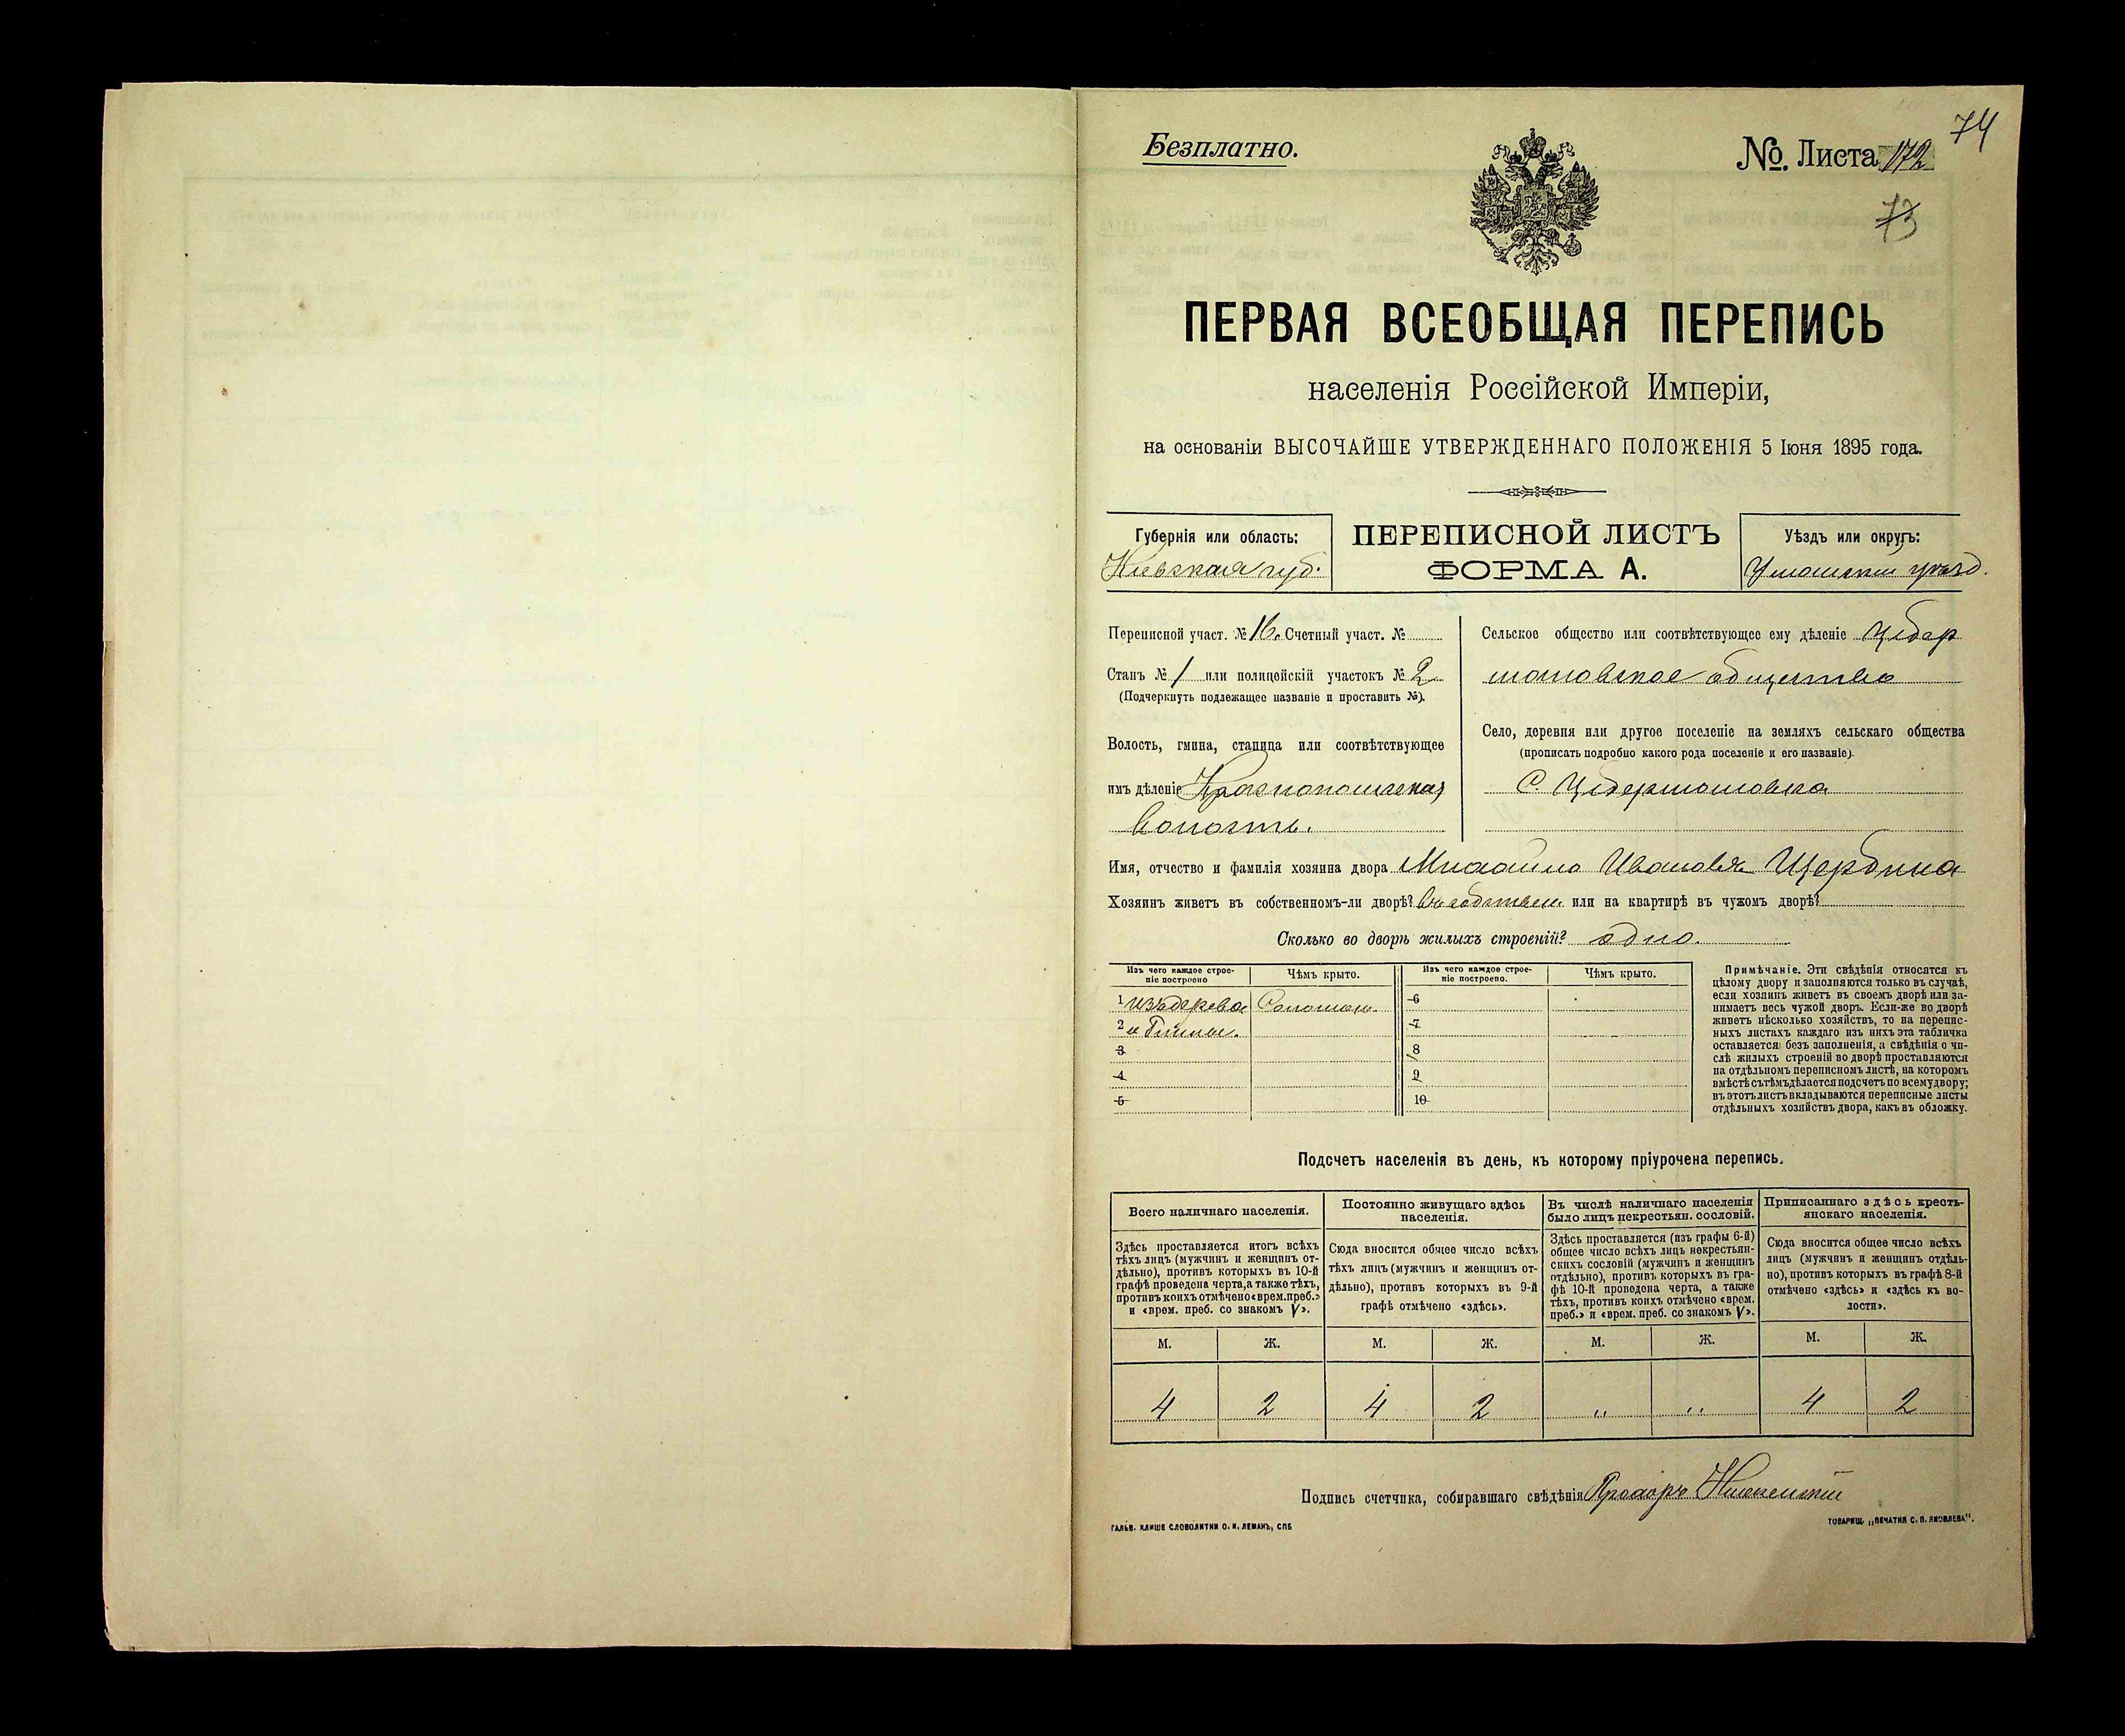 74
Безплатно.
№. Листа 172
73
ПЕРВАЯ ВСЕОБЩАЯ ПЕРЕПИСЬ
населенія Россійской Имперіи,
на основаніи ВЫСОЧАЙШЕ УТВЕРЖДЕННАГО ПОЛОЖЕНІЯ 5 Іюня 1895 года.
Губернія или область:
Кіевская губ.
ПЕРЕПИСНОЙ ЛИСТЪ
ФОРМА А.
Уѣздъ или округъ:
Уманскій уѣзд.
Переписной участ. № 16. Счетный участ. №
Станъ № 1 или полицейскій участокъ № 2
(Подчеркнуть подлежащее названіе и проставить №).
Волость, гмина, станица или соотвѣтствующее
имъ дѣленіе Краснопольская
волость.
Сельское общество или соотвѣтствующее ему дѣленіе Цебер
мановское общество
Село, деревня или другое поселеніе на земляхъ сельскаго общества
(прописать подробно какого рода поселеніе и его названіе).
С. Цебермановка
Имя, отчество и фамилія хозяина двора Михайло Ивановъ Щербина
Хозяинъ живетъ въ собственномъ-ли дворѣ? въ собствен. или на квартирѣ въ чужомъ дворѣ?
Сколько во дворѣ жилыхъ строеній? одно.
Изъ чего каждое строе-
ніе построено
Чѣмъ крыто.
Изъ чего каждое строе-
ніе построено.
Чѣмъ крыто.
1 изъ дерева Соломою.
2 и глины.
3
4
5
6
7
8
9
10
Примѣчаніе. Эти свѣдѣнія относятся къ
цѣлому двору и заполняются только въ случаѣ,
если хозяинъ живетъ въ своемъ дворѣ или за-
нимаетъ весь чужой дворъ. Если-же во дворѣ
живетъ нѣсколько хозяйствъ, то на перепис-
ныхъ листахъ каждаго изъ нихъ эта табличка
оставляется безъ заполненія, а свѣдѣнія о чи-
слѣ жилыхъ строеній во дворѣ проставляются
на отдѣльномъ переписномъ листѣ, на которомъ
вмѣстѣ съ тѣмъ дѣлается подсчетъ по всему двору;
въ этотъ листъ вкладываются переписные листы
отдѣльныхъ хозяйствъ двора, какъ въ обложку.
Подсчетъ населенія въ день, къ которому пріурочена перепись.
Всего наличнаго населенія.
Постоянно живущаго здѣсь
населенія.
Въ числѣ наличнаго населенія
было лицъ некрестьян. сословій.
Приписаннаго здѣсь кресть-
янскаго населенія.
Здѣсь проставляется итогъ всѣхъ
тѣхъ лицъ (мужчинъ и женщинъ от-
дѣльно), противъ которыхъ въ 10-й
графѣ проведена черта, а также тѣхъ,
противъ коихъ отмѣчено «врем. преб.»
и «врем. преб. со знакомъ V».
Сюда вносится общее число всѣхъ
тѣхъ лицъ (мужчинъ и женщинъ от-
дѣльно), противъ которыхъ въ 9-й
графѣ отмѣчено «здѣсь».
Здѣсь проставляется (изъ графы 6-й)
общее число всѣхъ лицъ некрестьян-
скихъ сословій (мужчинъ и женщинъ
отдѣльно), противъ которыхъ въ гра-
фѣ 10-й проведена черта, а также
тѣхъ, противъ коихъ отмѣчено «врем.
преб.» и «врем. преб. со знакомъ V».
Сюда вносится общее число всѣхъ
лицъ (мужчинъ и женщинъ отдѣль-
но), противъ которыхъ въ графѣ 8-й
отмѣчено «здѣсь» и «здѣсь къ во-
лости».
М. Ж. М. Ж. М. Ж. М. Ж.
4 2 4 2 " " 4 2
Подпись счетчика, собиравшаго свѣдѣнія Прохоръ
ГАЛЬВ. КЛИШЕ СЛОВОЛИТНИ О. И. ЛЕМАНЪ, СПБ
ТОВАРИЩ. „ПЕЧАТНЯ С. П. ЯКОВЛЕВА".